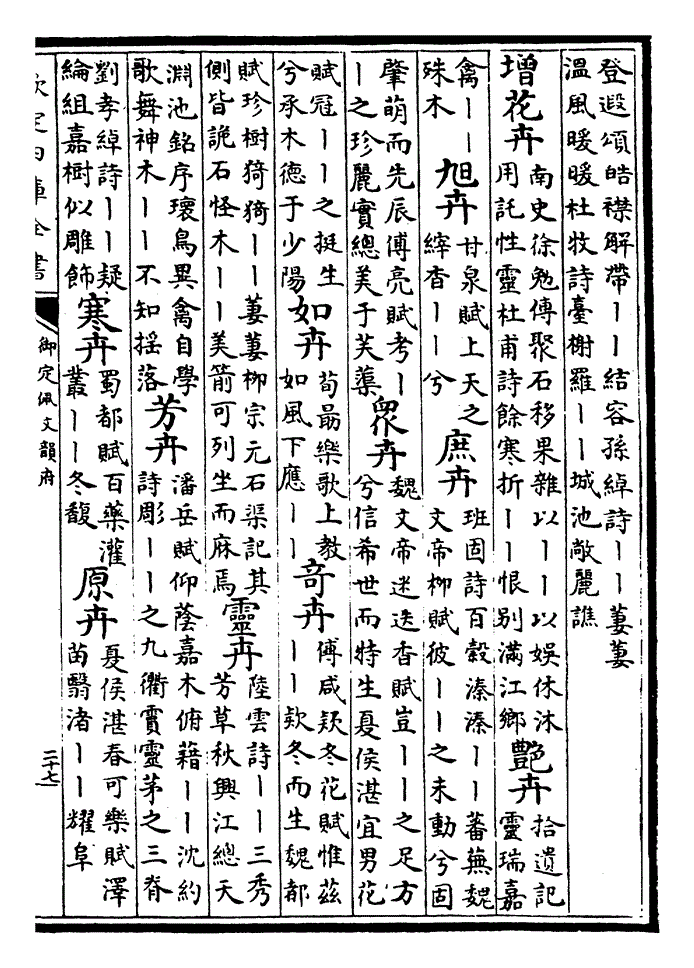 登遐頌皓襟解帶丨丨結容孫綽詩丨丨萋萋
溫風暖暖杜牧詩臺榭羅丨丨城池敞麗譙
增花卉南史徐勉傳聚石移果雜以丨丨以娛休沐
用託性靈杜甫詩餘寒折丨丨恨别滿江鄉艷卉拾遺記
靈瑞嘉
禽丨丨
殊木旭卉甘泉賦上天之
縡杳丨丨兮庶卉班固詩百穀溱溱丨丨蕃蕪魏
文帝栁賦彼丨丨之未動兮固
肇萌而先辰傅亮賦考丨
丨之珍麗實總美于芙蕖衆卉魏文帝迷迭香賦豈丨丨之足方
兮信希世而特生夏侯湛宜男花
賦冠丨丨之挺生
兮承木德于少陽如卉荀朂樂歌上教
如風下應丨丨竒卉傅咸欵冬花賦惟兹
丨丨欵冬而生魏都
賦珍樹猗猗丨丨萋萋栁宗元石渠記其
側皆詭石怪木丨丨美箭可列坐而庥焉靈卉陸雲詩丨丨三秀
芳草秋興江總天
淵池銘序瓌鳥異禽自學
歌舞神木丨丨不知揺落芳卉潘岳賦仰蔭嘉木俯藉丨丨沈約
詩彫丨丨之九衢霣靈茅之三脊
劉孝綽詩丨丨疑
綸組嘉樹似雕飾寒卉蜀都賦百藥灌
叢丨丨冬馥原卉夏侯湛春可樂賦澤
苗翳渚丨丨耀阜
欽定四庫全書
御定佩文韻府
二十七